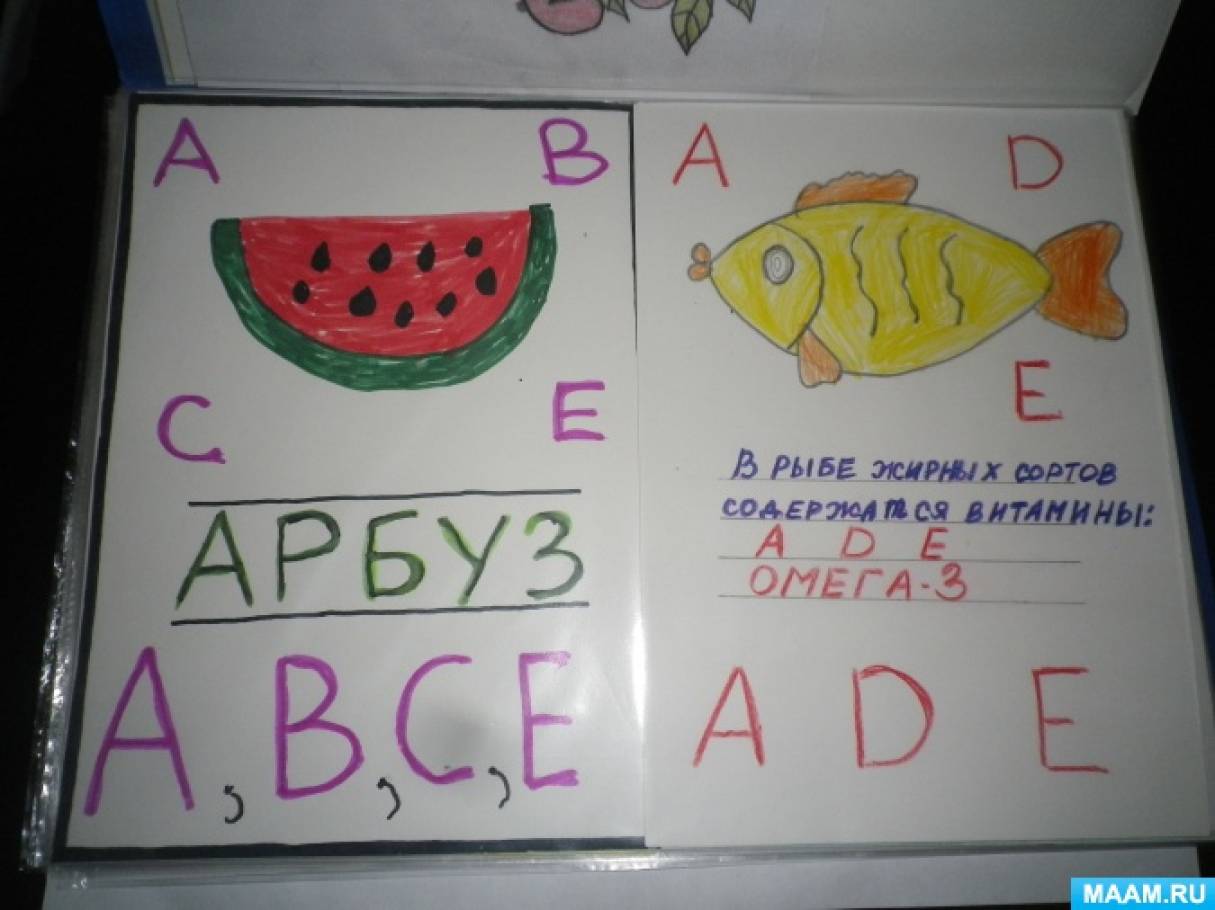 A B
C E
АРБУЗ
A, B, C, E
A D
E
В РЫБЕ ЖИРНЫХ СОРТОВ
СОДЕРЖАТСЯ ВИТАМИНЫ:
A D E
ОМЕГА-3
A D E
MAAM.RU